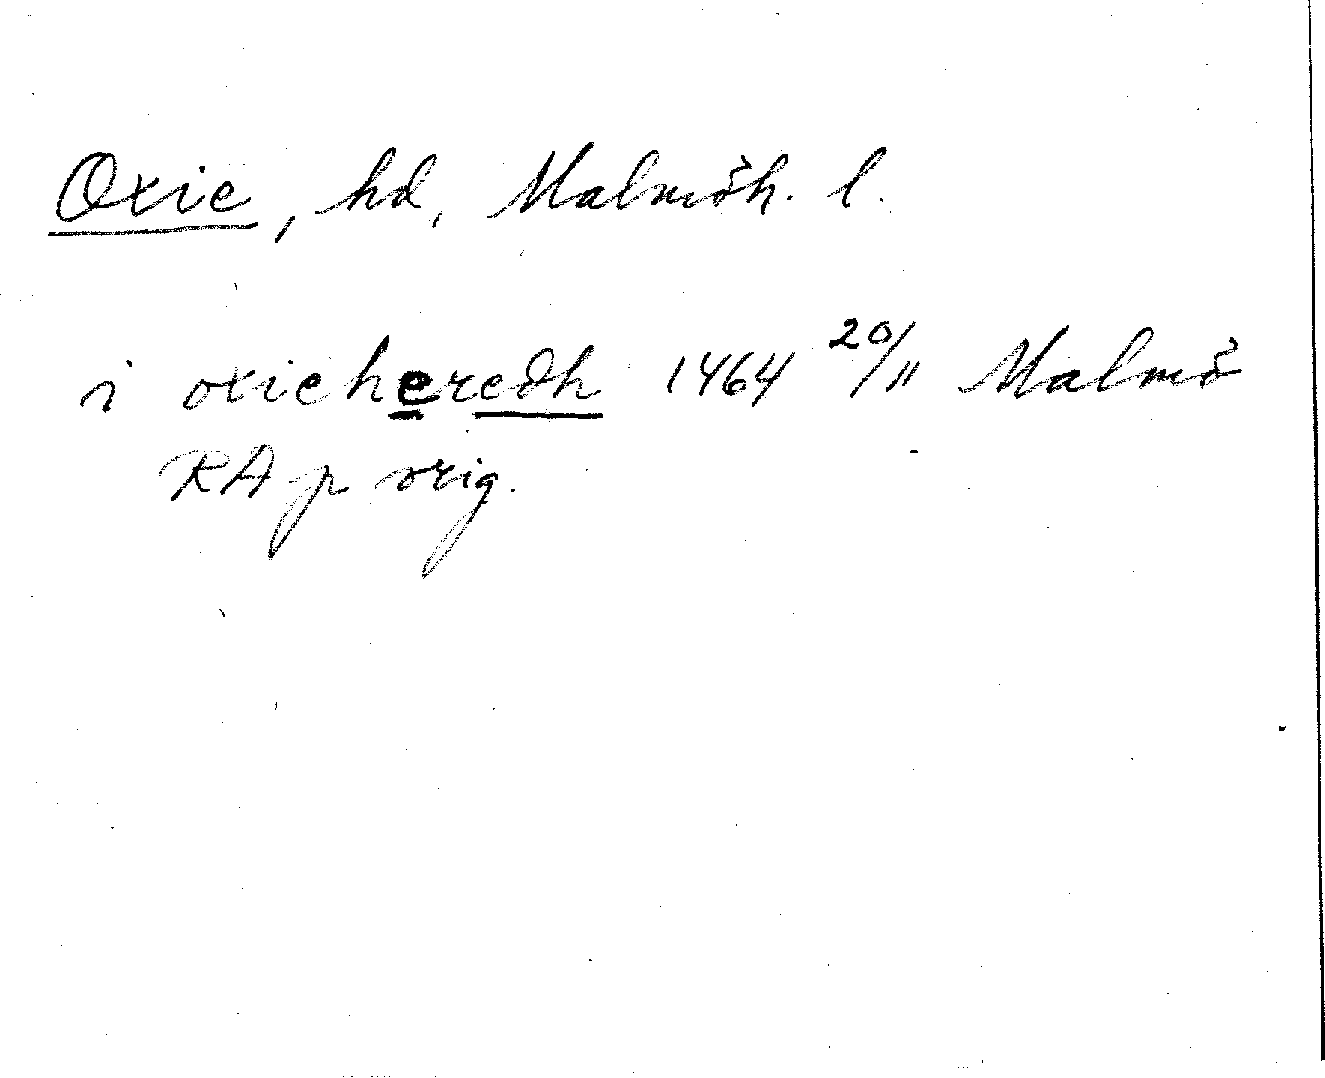 Oxie, hd, Malmöh. l.
i oxieheredh 1464 20/11 Malmö
RA p orig.